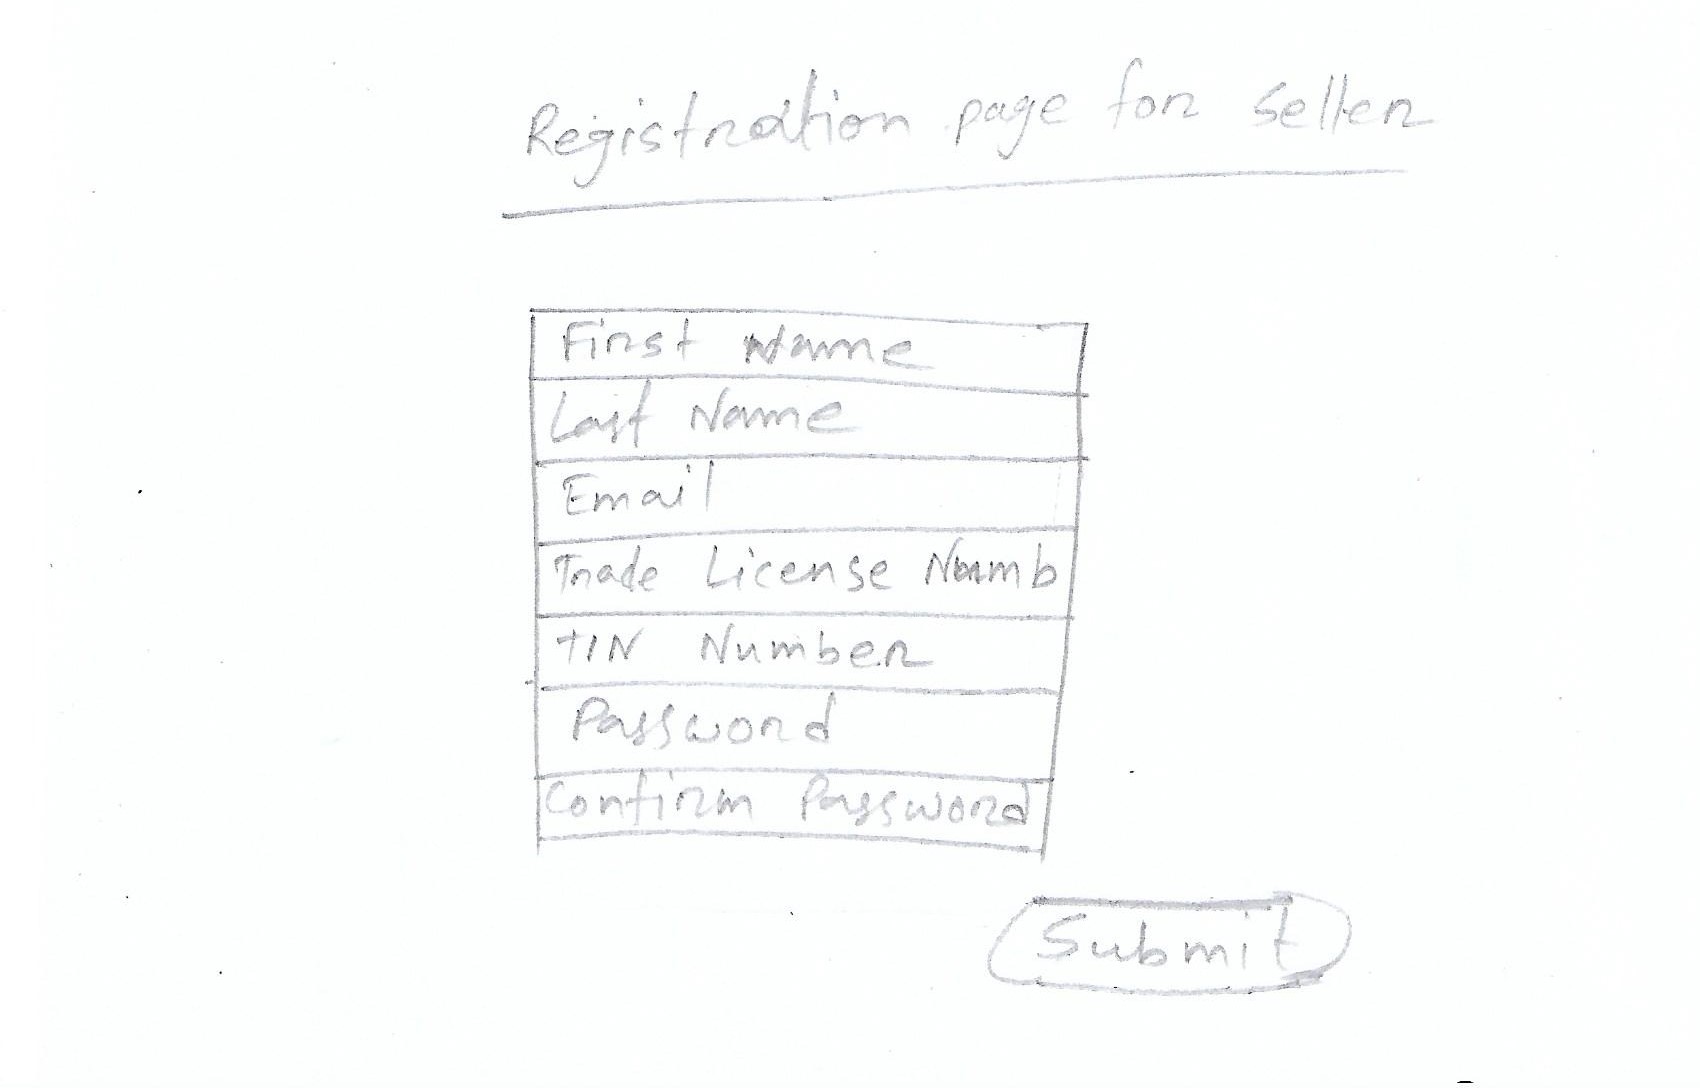 Registration page for seller
First Name
Last Name
Email
Trade License Numb
TIN Number
Password
Confirm Password
Submit